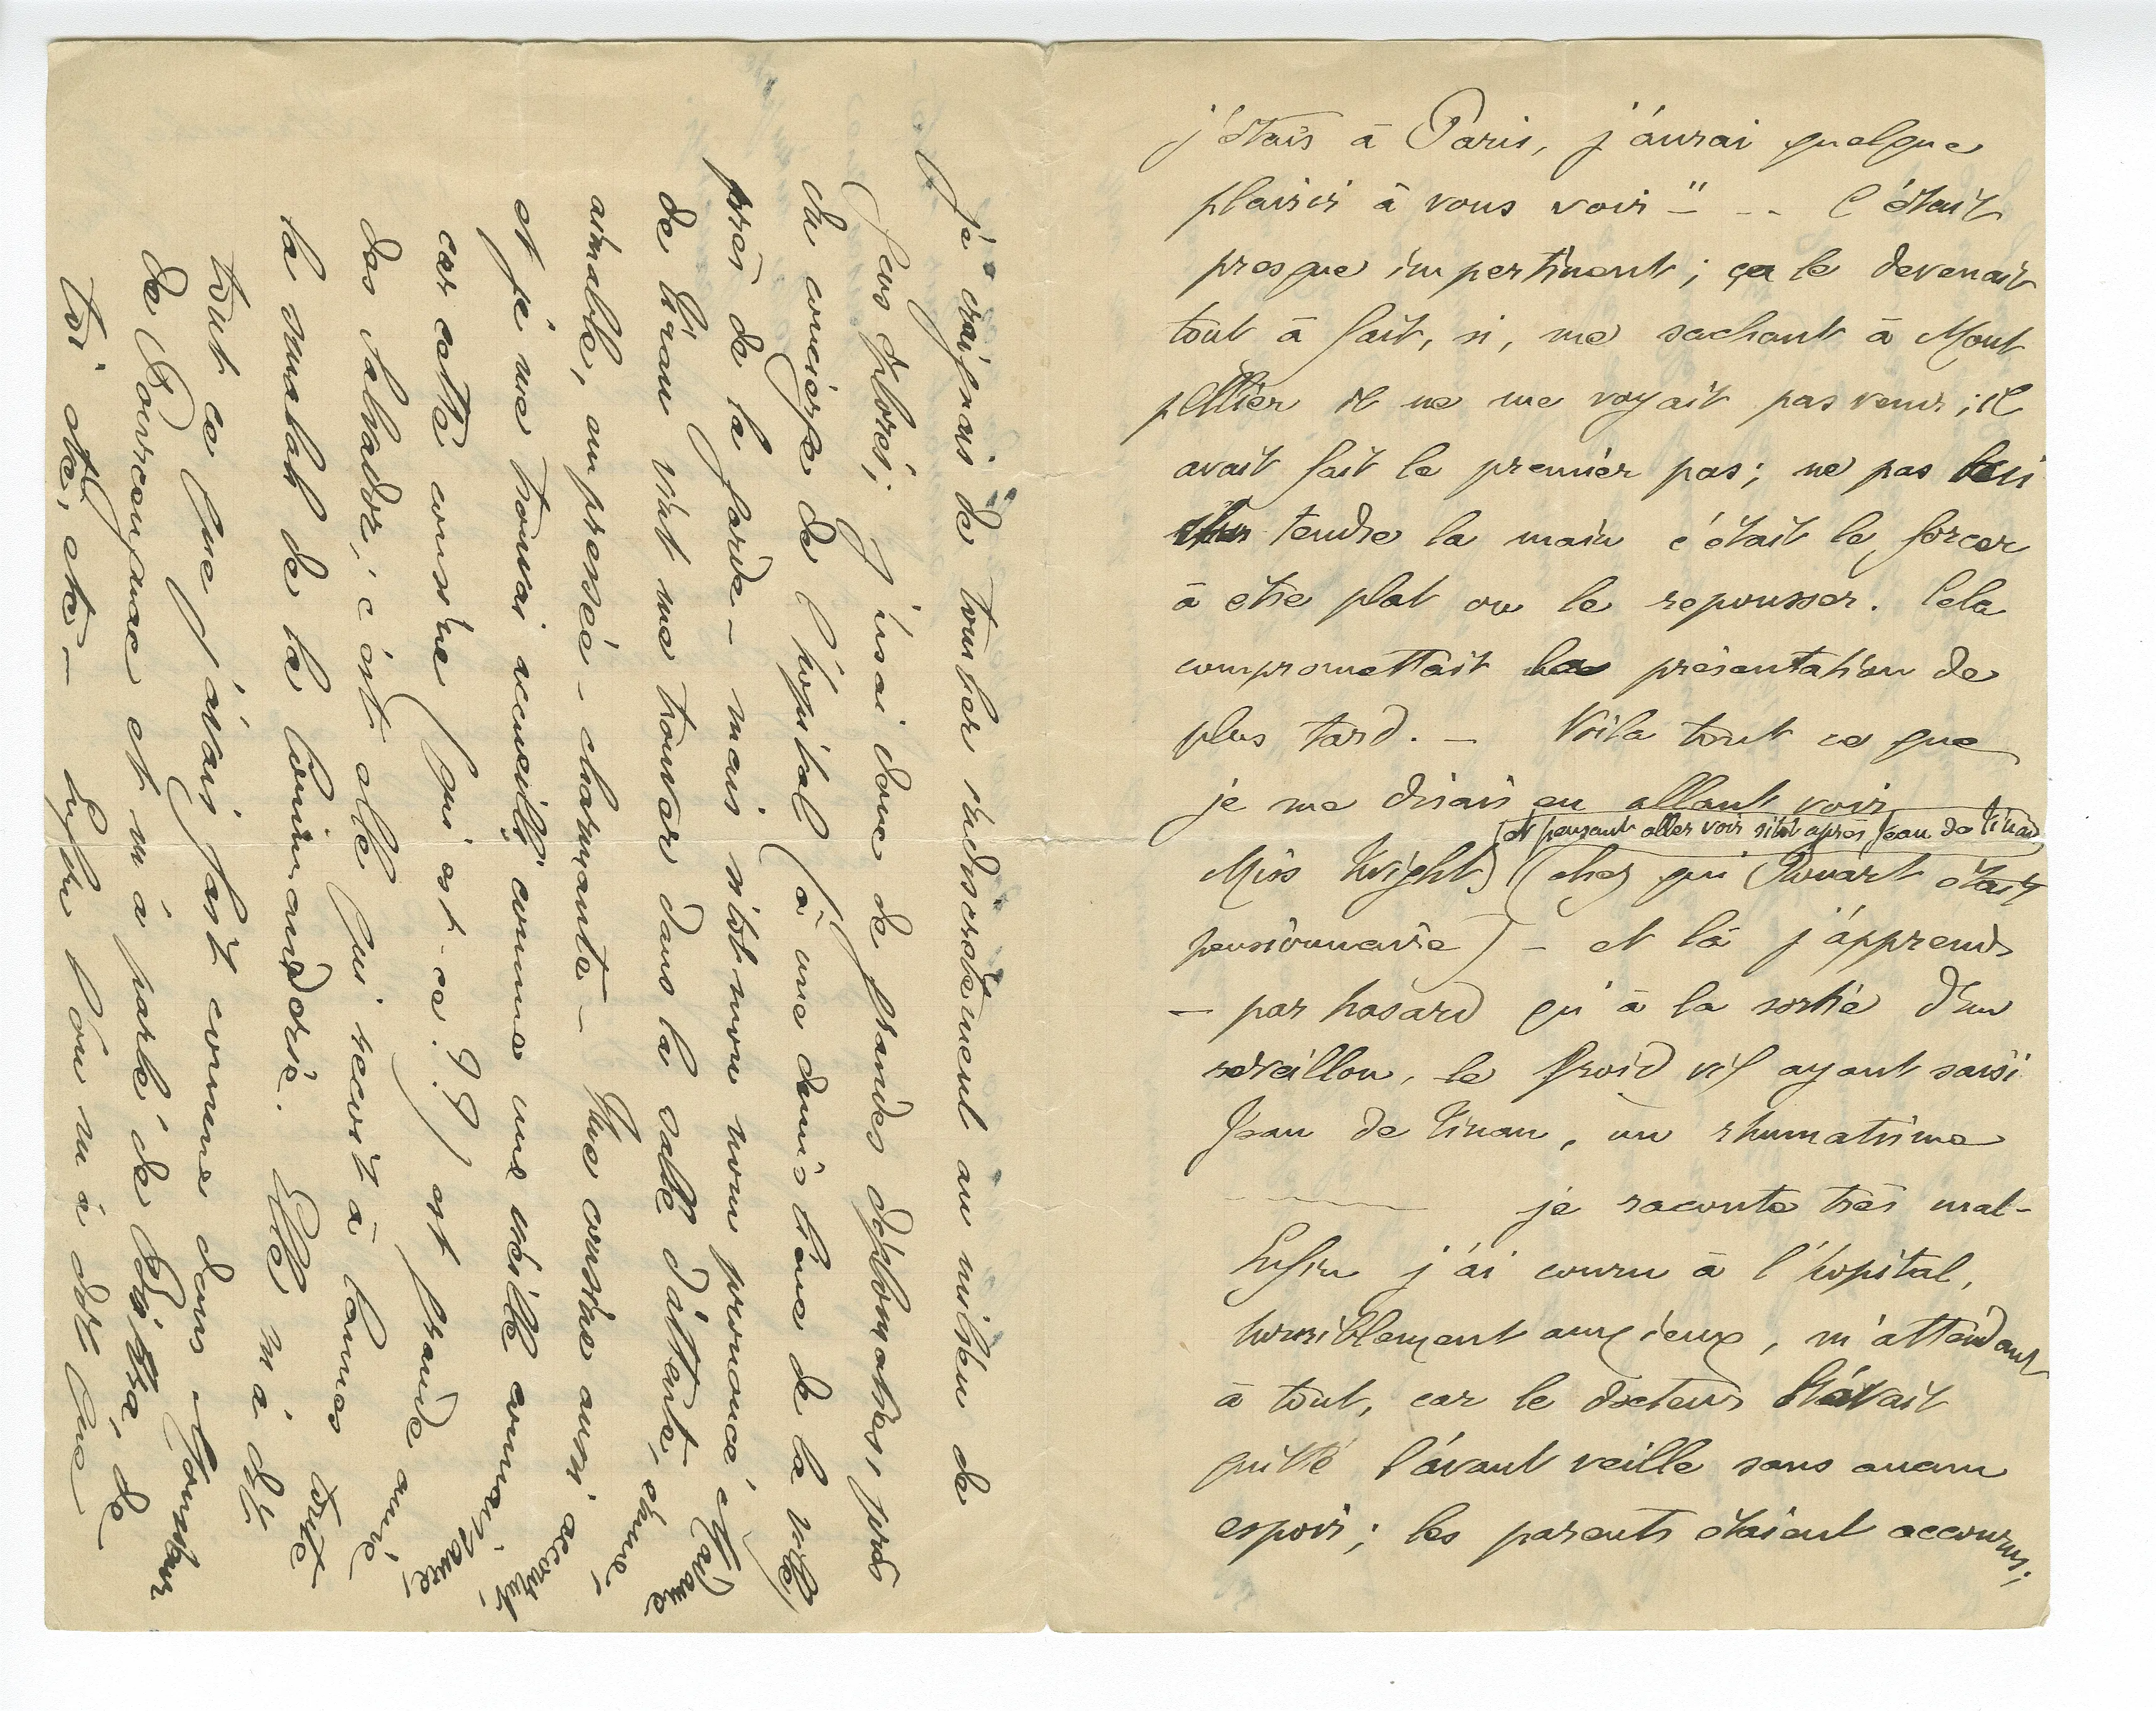 j'étais à Paris, j'aurai quelque
plaisir à vous voir" - -- C'était
presque impertinent; ça le devenait
tout à fait, si, me sachant à Mont
pellier il ne me voyait pas venir; il
avait fait le premier pas; ne pas lui
tendre la main c'était le forcer
à être plat ou le repousser. Cela
compromettait la présentation de
plus tard. - Voila tout ce que
je me disais en allant voir
(et pensant aller voir sitôt après Jean de Tinan)
Miss Knight) (chez qui Rouart était
pensionnaire) - et là j'apprends
- par hasard qu'à la sortie d'un
réveillon, le froid vif ayant saisi
Jean de Tinan, un rhumatisme
je raconte très mal -
Enfin j'ai couru à l'hopital,
horriblement anxieux, m'attendant
à tout, car le docteur l'avait
quitté l'avant veille sans aucun
espoir; les parents étaient accourus;
Je craignais de tomber indiscrètement au milieu de
gens éplorés; j'usai donc de grandes diplomaties, près
du concierge de l'hôpital (à une demi lieue de la ville)
près de la garde - mais sitôt mon nom prononcé Madame
de Tinan vint me trouver dans la salle d'attente, émue,
aimable, empressée - charmante - Une cousine aussi accourut,
et je me trouvai accueilli comme une vieille connaissance,
car cette cousine (qui est-ce ??) est grande amie
des Salvador; c'est elle qui récrit à James toute
la smalah de la Commanderie. Elle m'a dit
tout ce que j'avais fait comme dans Gontran
de Poncegnac et m'a parlé de Biskra, de
toi etc, etc - Enfin l'on m'a dit que